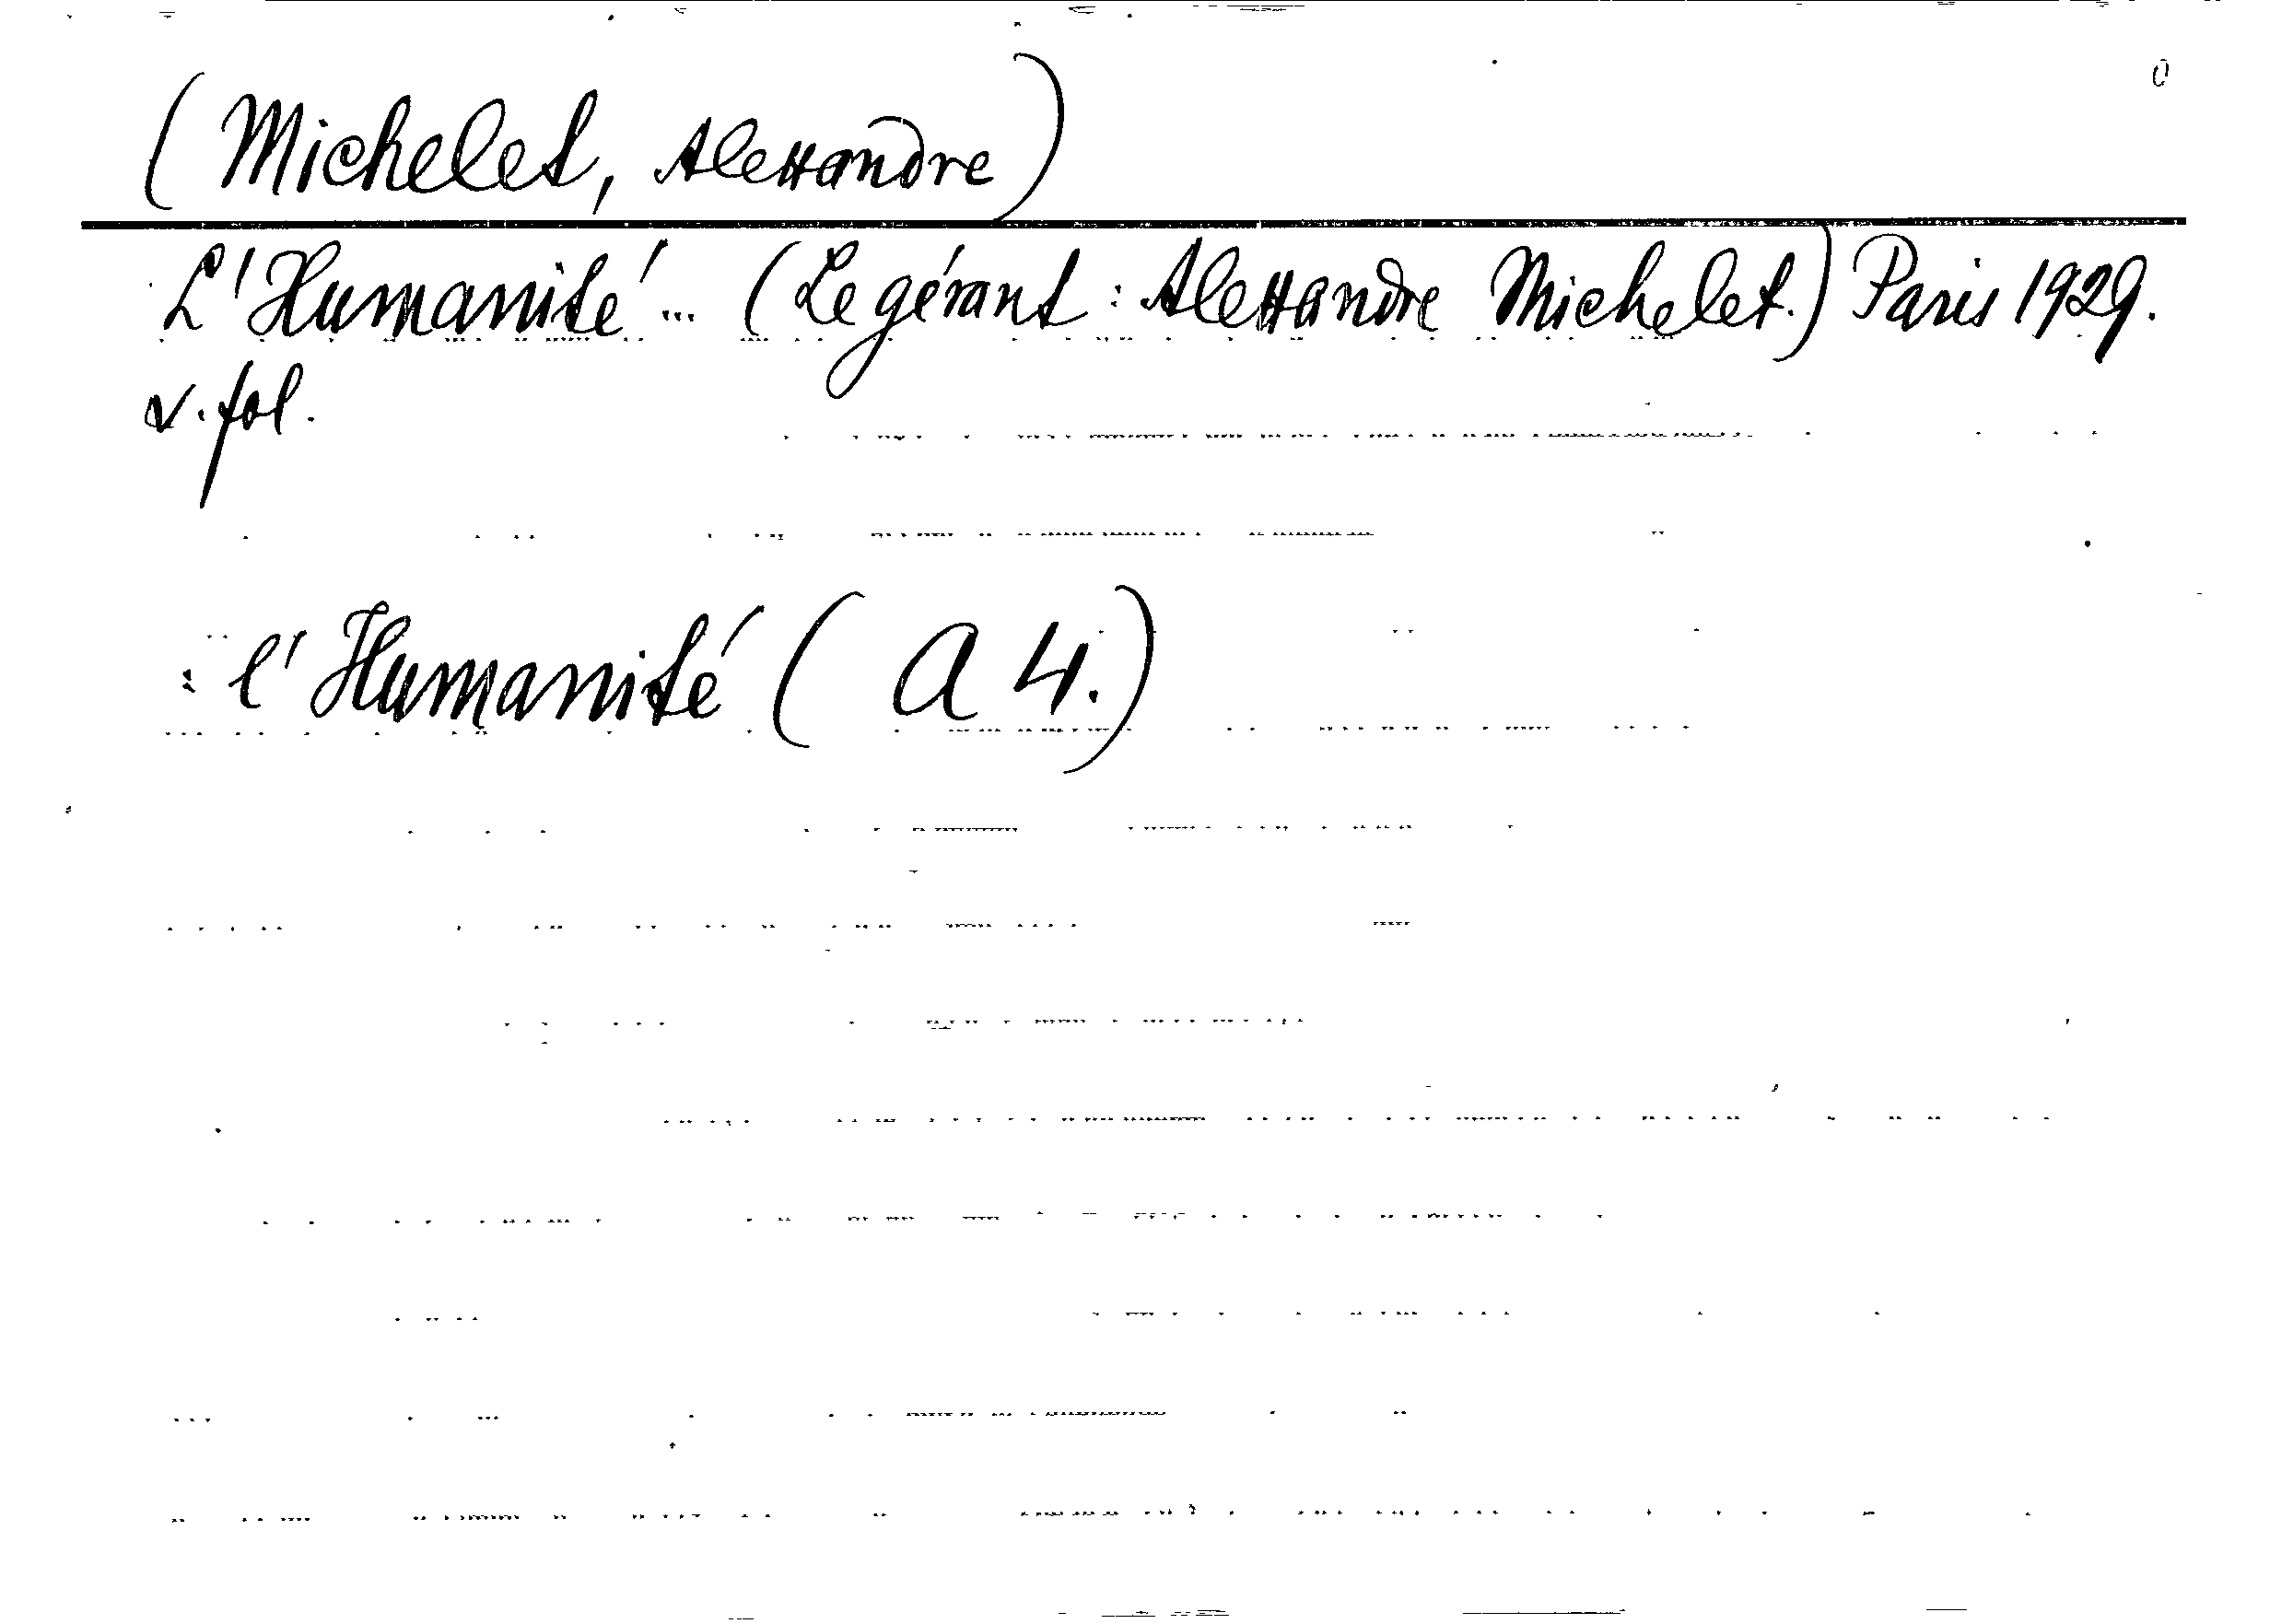 (Michelet, Alexandre)
L'Humanité... (Le gérant: Alexandre Michelet.) Paris 1929.
v. fol.
: l'Humanité (A 4.)